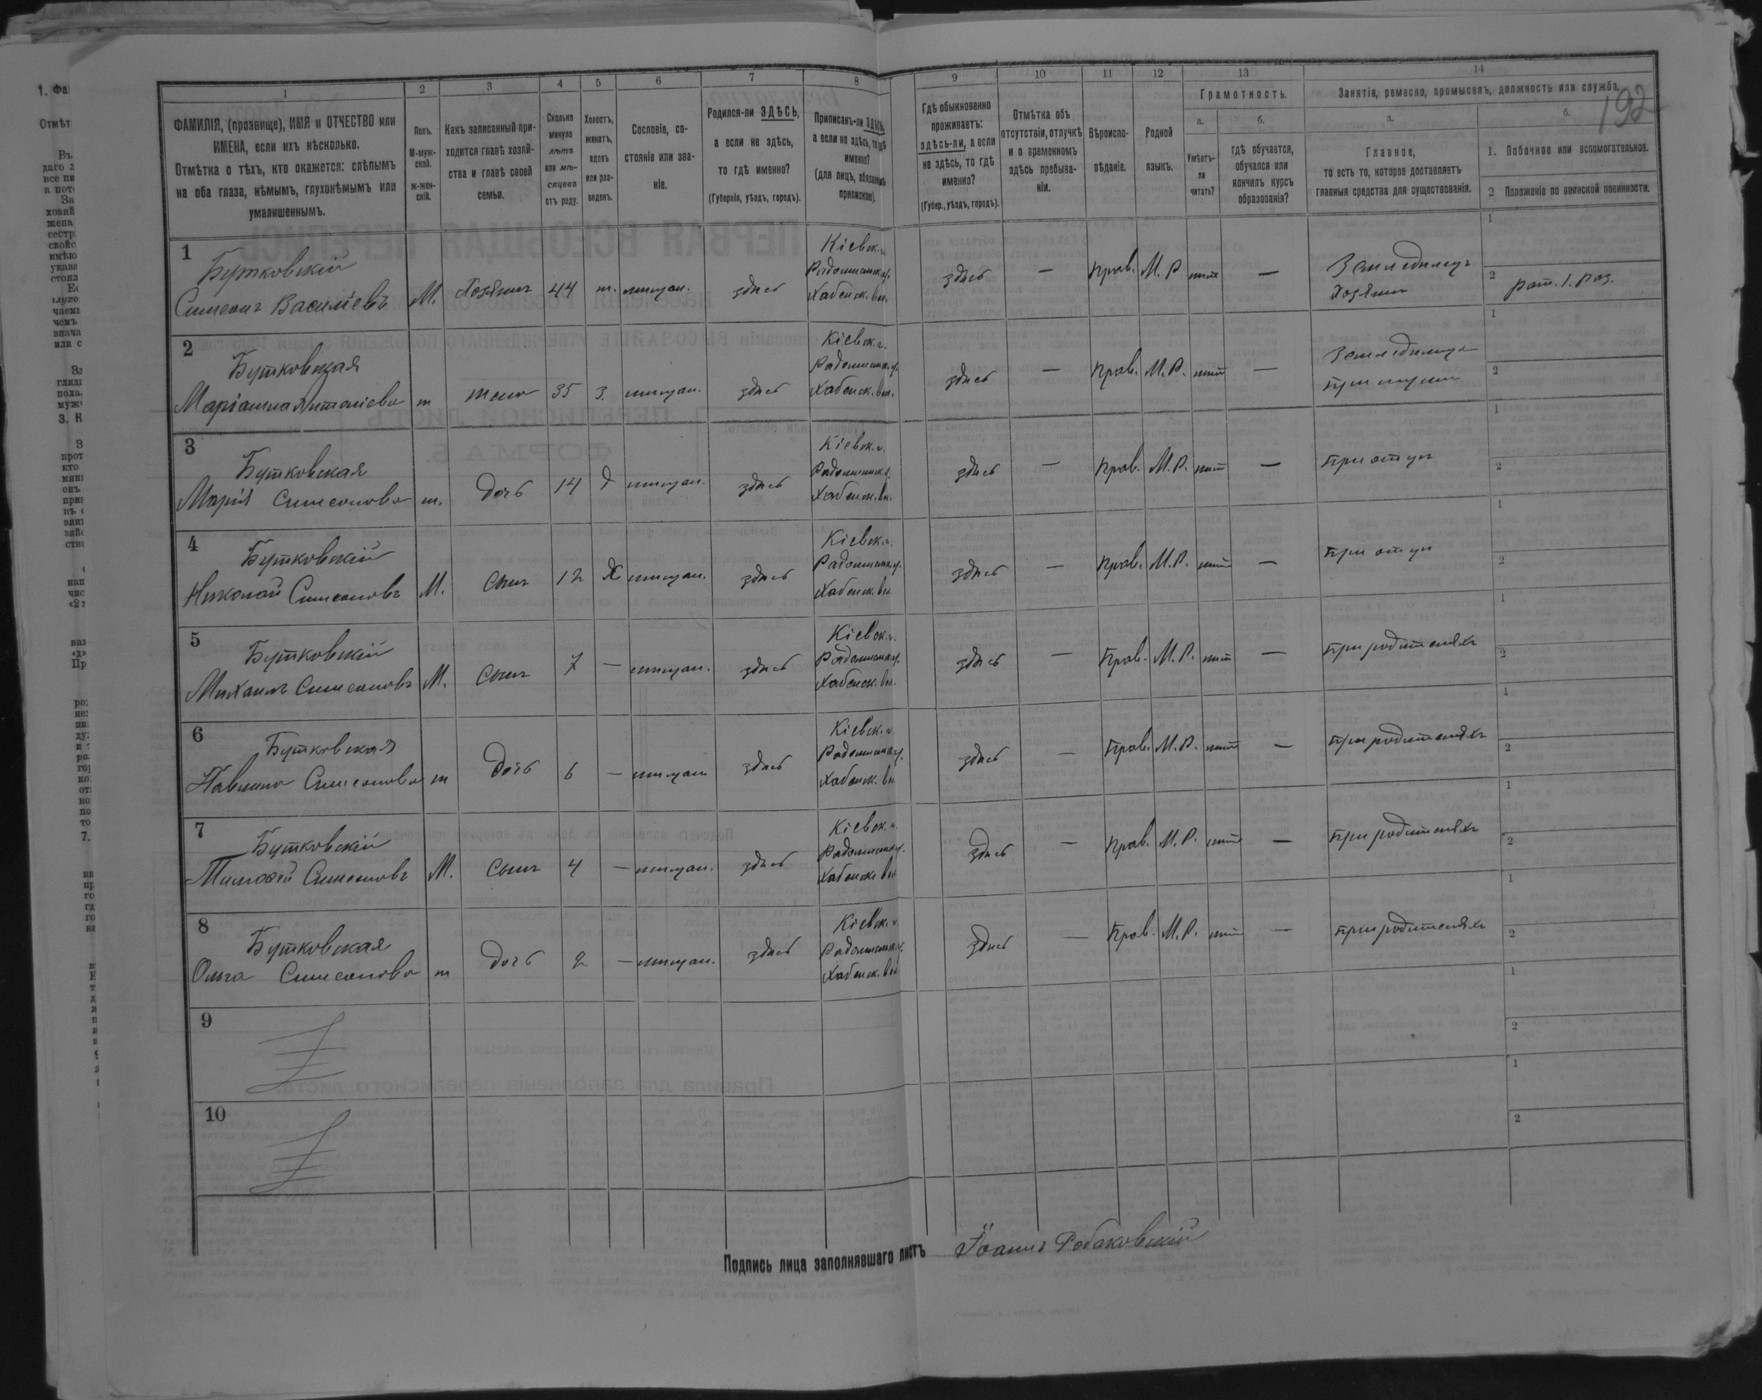 192
1 2 3 4 5 6 7 8 9 10 11 12 13 14
ФАМИЛІЯ, (прозвище), ИМЯ и ОТЧЕСТВО или
ИМЕНА, если ихъ нѣсколько.
Отмѣтка о тѣхъ, кто окажется: слѣпымъ
на оба глаза, нѣмымъ, глухонѣмымъ или
умалишеннымъ.
Полъ.
М-муж-
ской.
ж-жен-
скій.
Какъ записанный при-
ходится главѣ хозяй-
ства и главѣ своей
семьи.
Сколько
минуло
лѣтъ
или мѣ-
сяцевъ
отъ роду.
Холостъ,
женатъ,
вдовъ
или раз-
веденъ.
Сословіе, со-
стояніе или зва-
ніе.
Родился-ли ЗДѢСЬ,
а если не здѣсь,
то гдѣ именно?
(Губернія, уѣздъ, городъ).
Приписанъ-ли ЗДѢСЬ,
а если не здѣсь, то гдѣ
именно?
(для лицъ, обязанныхъ
припиской).
Гдѣ обыкновенно
проживаетъ:
здѣсь-ли, а если
не здѣсь, то гдѣ
именно?
(Губер., уѣздъ, городъ).
Отмѣтка объ
отсутствіи, отлучкѣ
и о временномъ
здѣсь пребыва-
ніи.
Вѣроиспо-
вѣданіе.
Родной
языкъ.
Грамотность.
а.
Умѣетъ-
ли
читать?
б.
Гдѣ обучается,
обучался или
кончилъ курсъ
образованія?
Занятіе, ремесло, промыселъ, должность или служба.
а.
Главное,
то есть то, которое доставляетъ
главныя средства для существованія.
б.
1. Побочное или вспомогательное.
2 Положеніе по воинской повинности.
1
Бутковскій
Симеонъ Василіевъ
М.
Хозяинъ
44
ж.
мѣщан.
здѣсь
Кіевск. г.
Радомыш. у.
Хабенск. вл.
здѣсь
—
Прав.
М. Р.
нѣтъ
—
Земледѣлецъ
Хозяинъ
1
2
рат. 1. раз.
2
Бутковская
Маріанна Антоніева
ж
жена
35
З.
мѣщан.
здѣсь
Кіевск. г.
Радомыш. у.
Хабенск. вл.
здѣсь
—
Прав.
М. Р.
нѣтъ
—
Земледѣлица
При мужѣ
1
2
3
Бутковская
Марія Симеонова
ж.
дочь
14
Д
мѣщан.
здѣсь
Кіевск. г.
Радомыш. у.
Хабенск. вл.
здѣсь
—
Прав.
М. Р.
нѣтъ
—
При отцѣ
1
2
4
Бутковскій
Николай Симеоновъ
М.
сынъ
12
Х
мѣщан.
здѣсь
Кіевск. г.
Радомыш. у.
Хабенск. вл
здѣсь
—
Прав.
М. Р.
нѣтъ
—
При отцѣ
1
2
5
Бутковскій
Михаилъ Симеоновъ
М.
сынъ
7
—
мѣщан.
здѣсь
Кіевск. г.
Радомыш. у.
Хабенск. вл.
здѣсь
—
Прав.
М. Р.
нѣтъ
—
При родителяхъ
1
2
6
Бутковская
Павлина Симеонова
ж
дочь
6
—
мѣщан
здѣсь
Кіевск. г.
Радомыш. у.
Хабенск. вл
здѣсь
—
Прав.
М. Р.
нѣтъ
—
При родителяхъ
1
2
7
Бутковскій
Тимофей Симеоновъ
М.
сынъ
4
—
мѣщан.
здѣсь
Кіевск. г.
Радомыш. у.
Хабенск. вл
здѣсь
—
Прав.
М. Р.
нѣтъ
—
При родителяхъ
1
2
8
Бутковская
Ольга Симеонова
ж
дочь
2
—
мѣщан.
здѣсь
Кіевск. г.
Радомыш. у.
Хабенск. вл
здѣсь
—
Прав.
М. Р.
нѣтъ
—
При родителяхъ
1
2
9
1
2
10
1
2
Подпись лица заполнявшаго листъ Іоаннъ Робаковскій